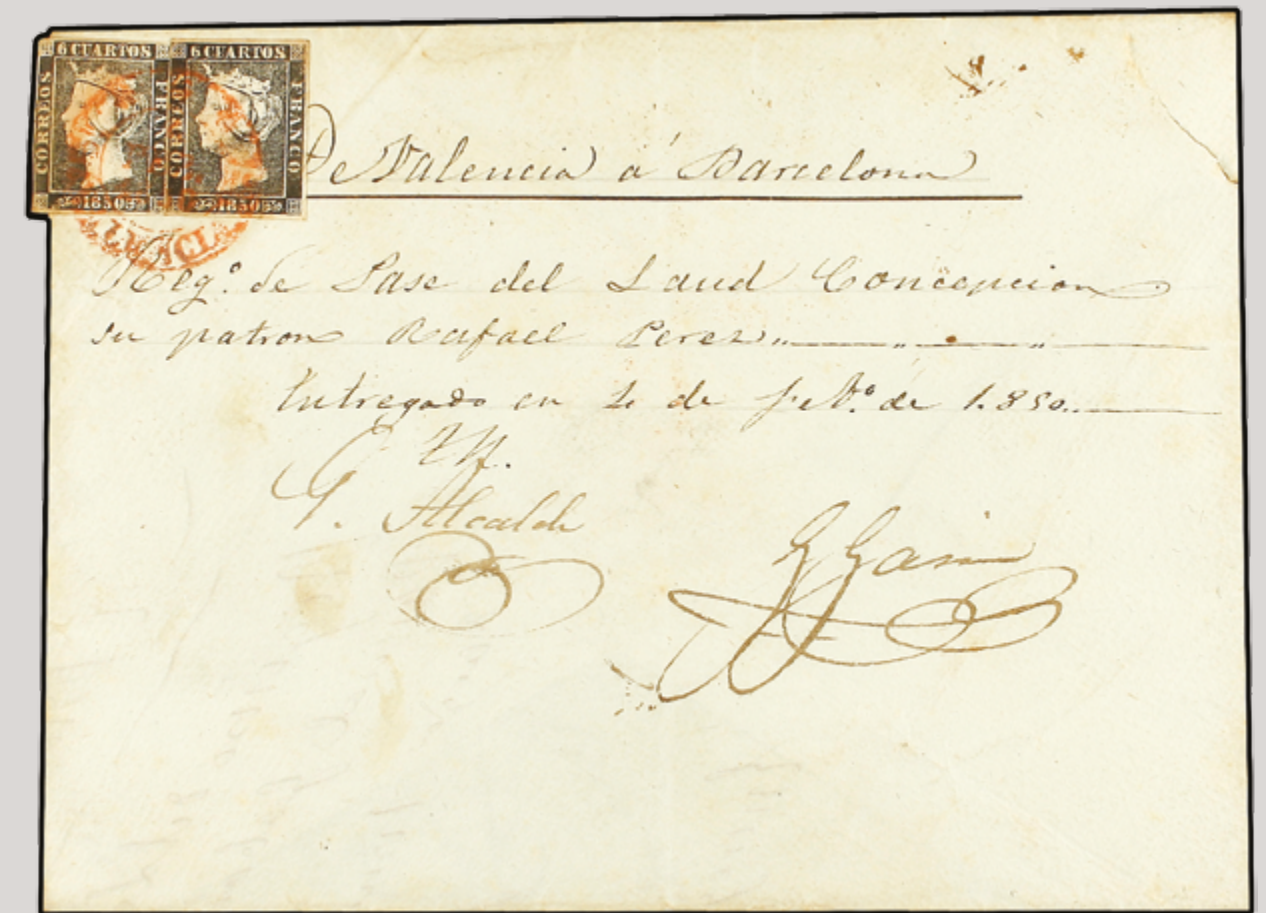 6 CUARTOS 6 CUARTOS
CORREOS FRANCO CORREOS FRANCO
1850 1850
De Valencia á Barcelona
Reg.º de Pase del Laud Concepcion
su patron Rafael Perez
Entregado en de Feb.º de 1.850
Alcalde